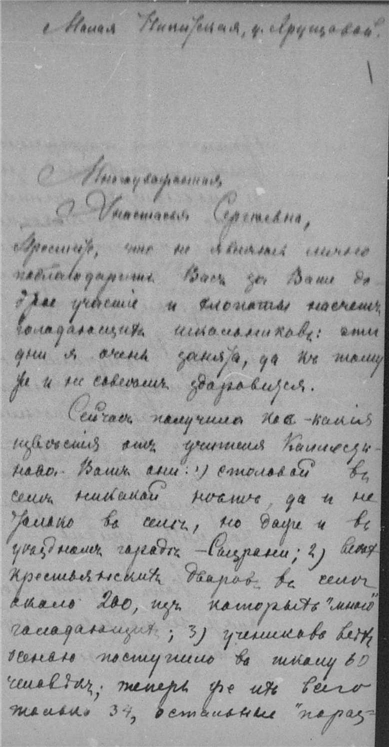 Малая Никитская, д. Хрущовой.
Многоуважаемая
Анастасья Сергѣевна,
Простите, что не являюсь лично
поблагодарить Васъ за Ваше до-
брое участіе и хлопоты насчетъ
голодающихъ школьниковъ: эти
дни я очень занята, да къ тому
же и не совсѣмъ здоровится.
Сейчасъ получила кое-какія
извѣстія отъ учителя
Вотъ они: 1) столовой въ
селѣ никакой нѣтъ, да и не
только въ селѣ, но даже и въ
уѣздномъ городѣ – Сызрани; 2) всѣхъ
крестьянскихъ дворовъ въ селѣ
около 200, изъ которыхъ "много"
голодающихъ; 3) учениковъ всѣхъ
осенью поступило въ школу 60
человѣкъ; теперь же ихъ всего
только 34, остальные